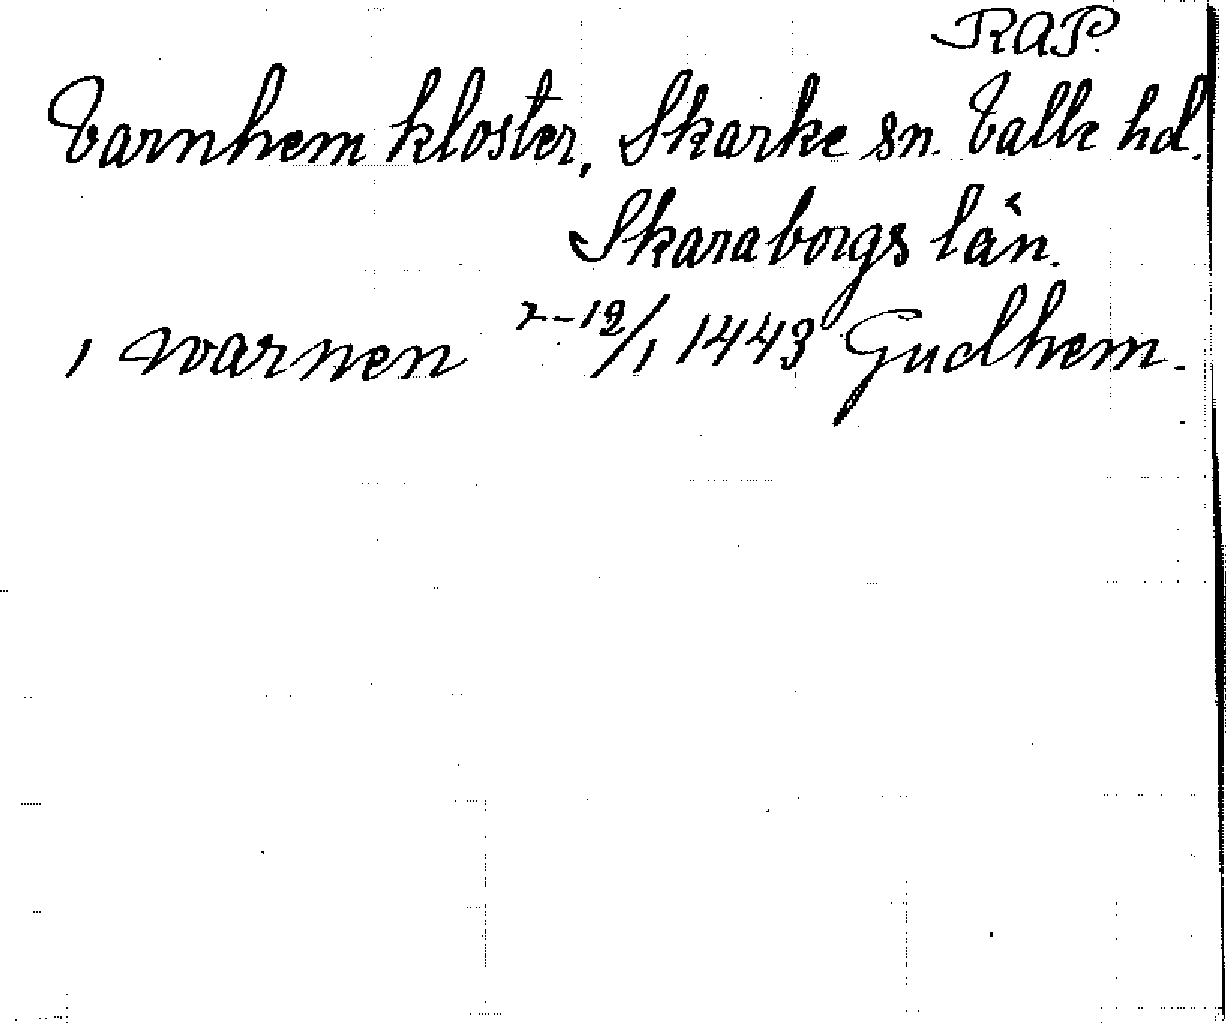 RAP.
Varnhem kloster, Skarke sn. Valle hd.
Skaraborgs län.
i warnen 7-12/1 1443 Gudhem.